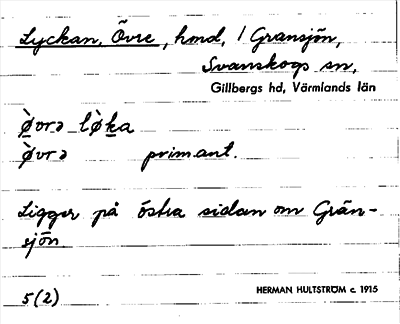 Lyckan, Övre, hmd, / Gransjön,
Svanskogs sn,
Gillbergs hd, Värmlands län
ø̀vrə lø̀ka
ø̀vrə prim. ant.
Ligger på östra sidan om Grän-
sjön.
5(2)
HERMAN HULTSTRÖM c. 1915